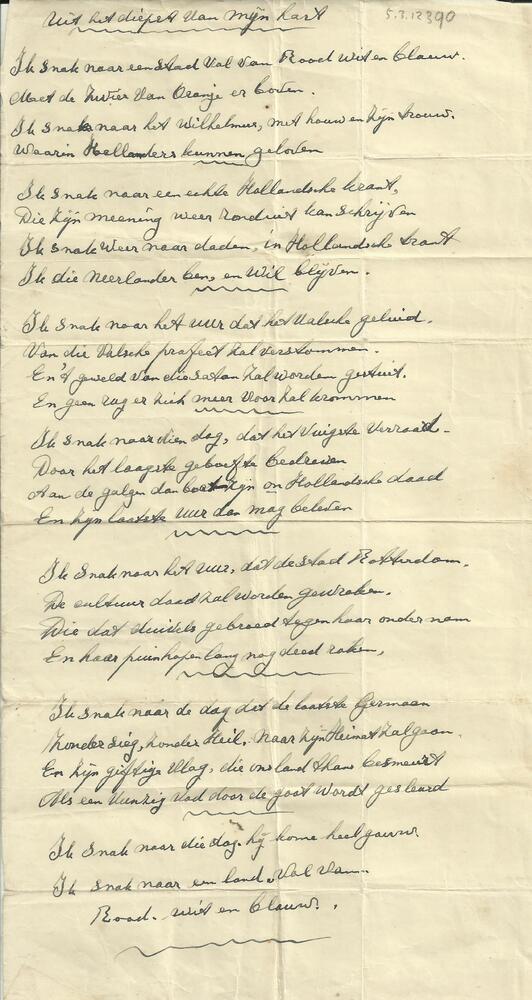 Uit het diepst van mijn hart
5.3.12390
Ik snak naar een stad vol van Rood wit en blauw.
Met de zuvier van Oranje er boven.
Ik snak naar het Wilhelmus, met houw en zijn trouw.
Waarin Hollanders kunnen geloven
Ik snak naar een echte Hollandsche krant,
Die zijn meening weer ronduit kan schrijven
Ik snak weer naar daden, in Hollandsche trant
Ik die Neerlander ben, en wil blijven.
Ik snak naar het uur dat het valsche geluid.
Van die valsche profeet zal verstommen.
En 't geweld van die satan zal worden gestuit.
En geen rug er zich meer voor zal krommen
Ik snak naar dien dag, dat het vuigste verraad.
Door het laagste geboefte bedreven
Aan de galgen dan boet zijn on Hollandsche daad
En zijn laatste uur dan mag beleven
Ik snak naar het uur, dat de stad Rotterdam.
De cultuur daad zal worden gewroken.
Die dat duivels gebroed tegen haar onder nam
En haar puinhopen lang nog deed roken,
Ik snak naar de dag dat de laatste Germaan
Zonder sieg, zonder Heil, naar zijn Heimat zal gaan.
En zijn giftige vlag, die ons land thans besmeurt
Als een vunzig vod door de goot wordt gesleurd
Ik snak naar die dag. hij kome heel gauw.
Ik snak naar een land vol van
Rood. wit en blauw.